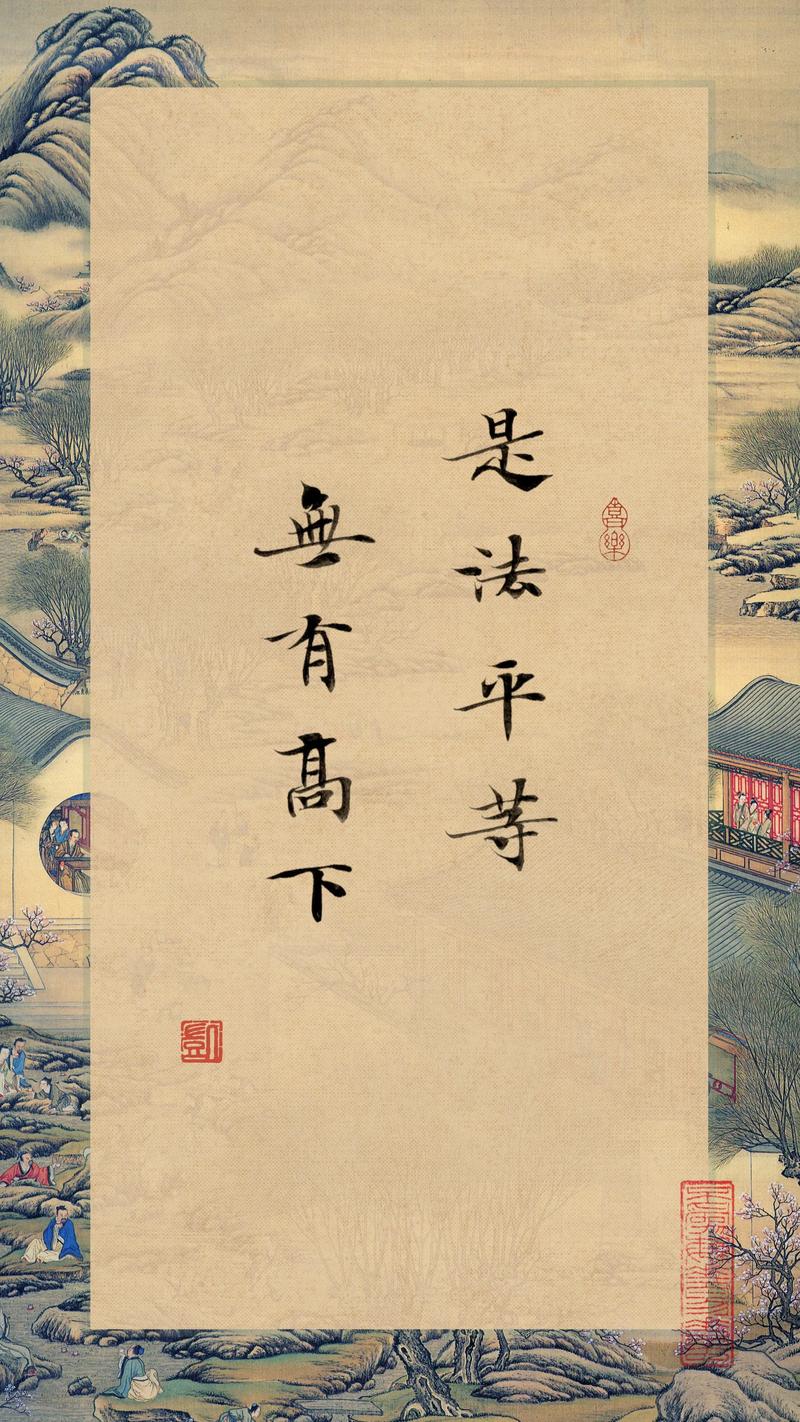 是法平等
無有高下
喜樂